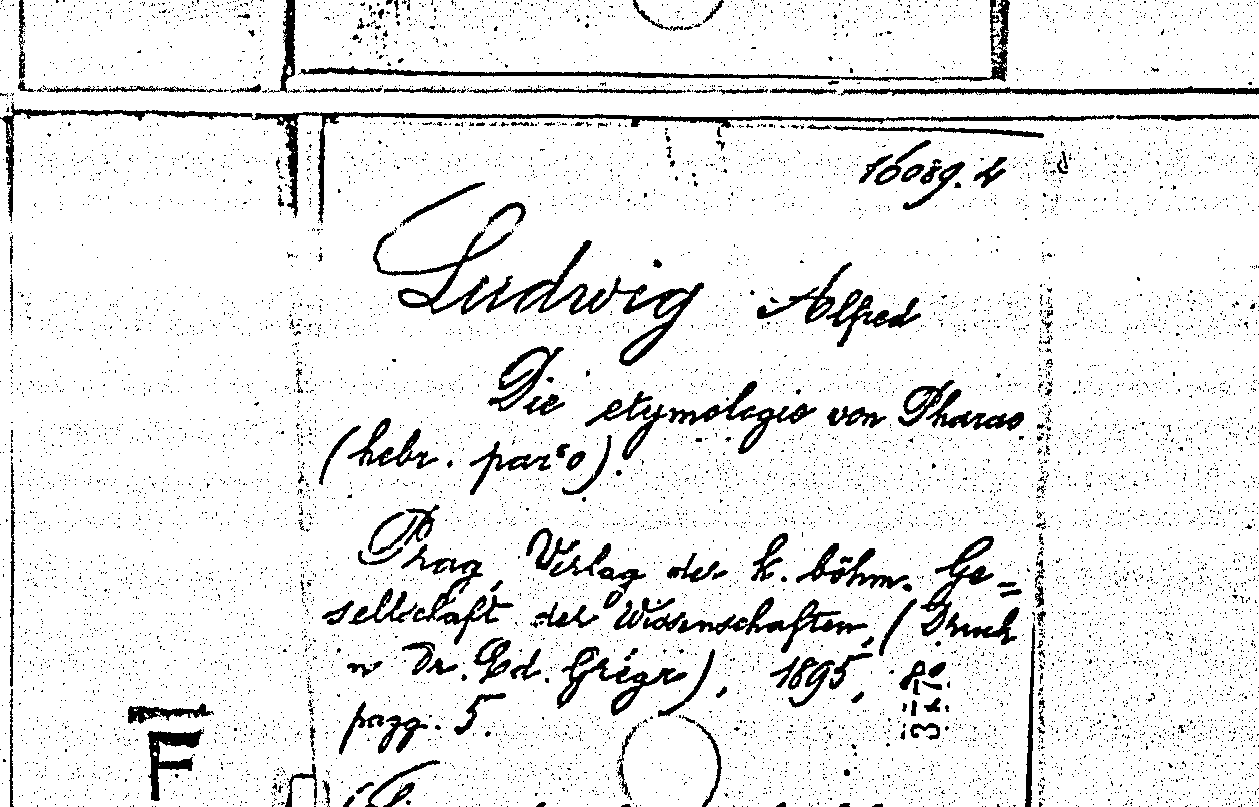 16089.4
Ludwig Alfred
Die etymologie von Pharao
(hebr. parʿo).
Prag, Verlag der k. böhm. Ge=
sellschaft der Wissenschaften, (Druck
v Dr. Ed. Grégr), 1895,
pagg. 5.
F